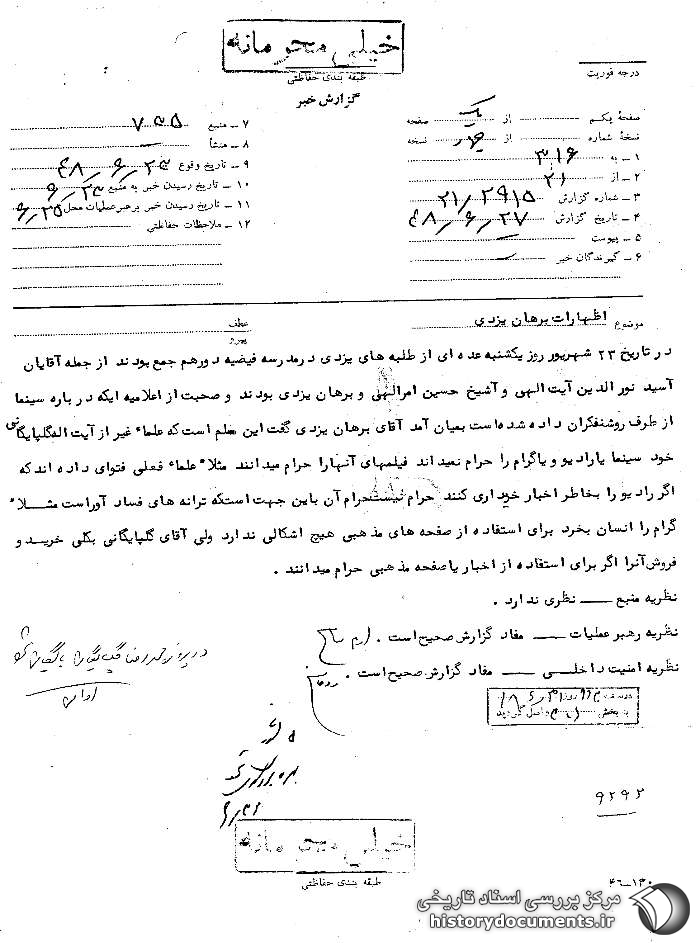 خیلی محرمانه
طبقه بندی حفاظتی
گزارش خبر
درجه فوریت
صفحهٔ یکم از یک صفحه
نسخهٔ شماره از نسخه
۱ ـ به ۳۱۶
۲ ـ از ۲۱
۳ ـ شماره گزارش ۲۱/۲۹۱۵
۴ ـ تاریخ گزارش ۴۸/۶/۲۷
۵ ـ پیوست
۶ ـ گیرندگان خبر
۷ ـ منبع ۷۳۵
۸ ـ منشأ
۹ ـ تاریخ وقوع ۴۸/۶/۲۳
۱۰ ـ تاریخ رسیدن خبر به منبع ۶/۲۳
۱۱ ـ تاریخ رسیدن خبر برهبر عملیات محل ۶/۲۵
۱۲ ـ ملاحظات حفاظتی
موضوع اظهارات برهان یزدی
عطف
پیرو
در تاریخ ۲۳ شهریور روز یکشنبه عده ای از طلبه های یزدی در مدرسه فیضیه دورهم جمع بودند از جمله آقایان
آسید نورالدین آیت الهی و آشیخ حسین امرالهی و برهان یزدی بودند و صحبت از اعلامیه ایکه درباره سینما
از طرف روشنفکران داده شده است بمیان آمد آقای برهان یزدی گفت این معلم است که علماء غیر از آیت اله گلپایگانی
خود سینما یا رادیو و یا گرام را حرام نمیداند فیلمهای آنها را حرام میدانند مثلا علماء فعلی فتوای داده اند که
اگر رادیو را بخاطر اخبار خریداری کنند حرام نیست حرام آن باین جهت استکه ترانه های فساد آور است مثلاً
گرام را انسان بخرد برای استفاده از صفحه های مذهبی هیچ اشکالی ندارد ولی آقای گلپایگانی بکلی خرید و
فروش آنرا اگر برای استفاده از اخبار یا صفحه مذهبی حرام میدانند .
نظریه منبع ـــ نظری ندارد .
نظریه رهبر عملیات ـــ مفاد گزارش صحیح است .
نظریه امنیت داخلی ـــ مفاد گزارش صحیح است .
به بخش واصل گردید
۹۲۹۲
خیلی محرمانه
طبقه بندی حفاظتی
۴۶ـ۱۳۰
مرکز بررسی اسناد تاریخی
historydocuments.ir